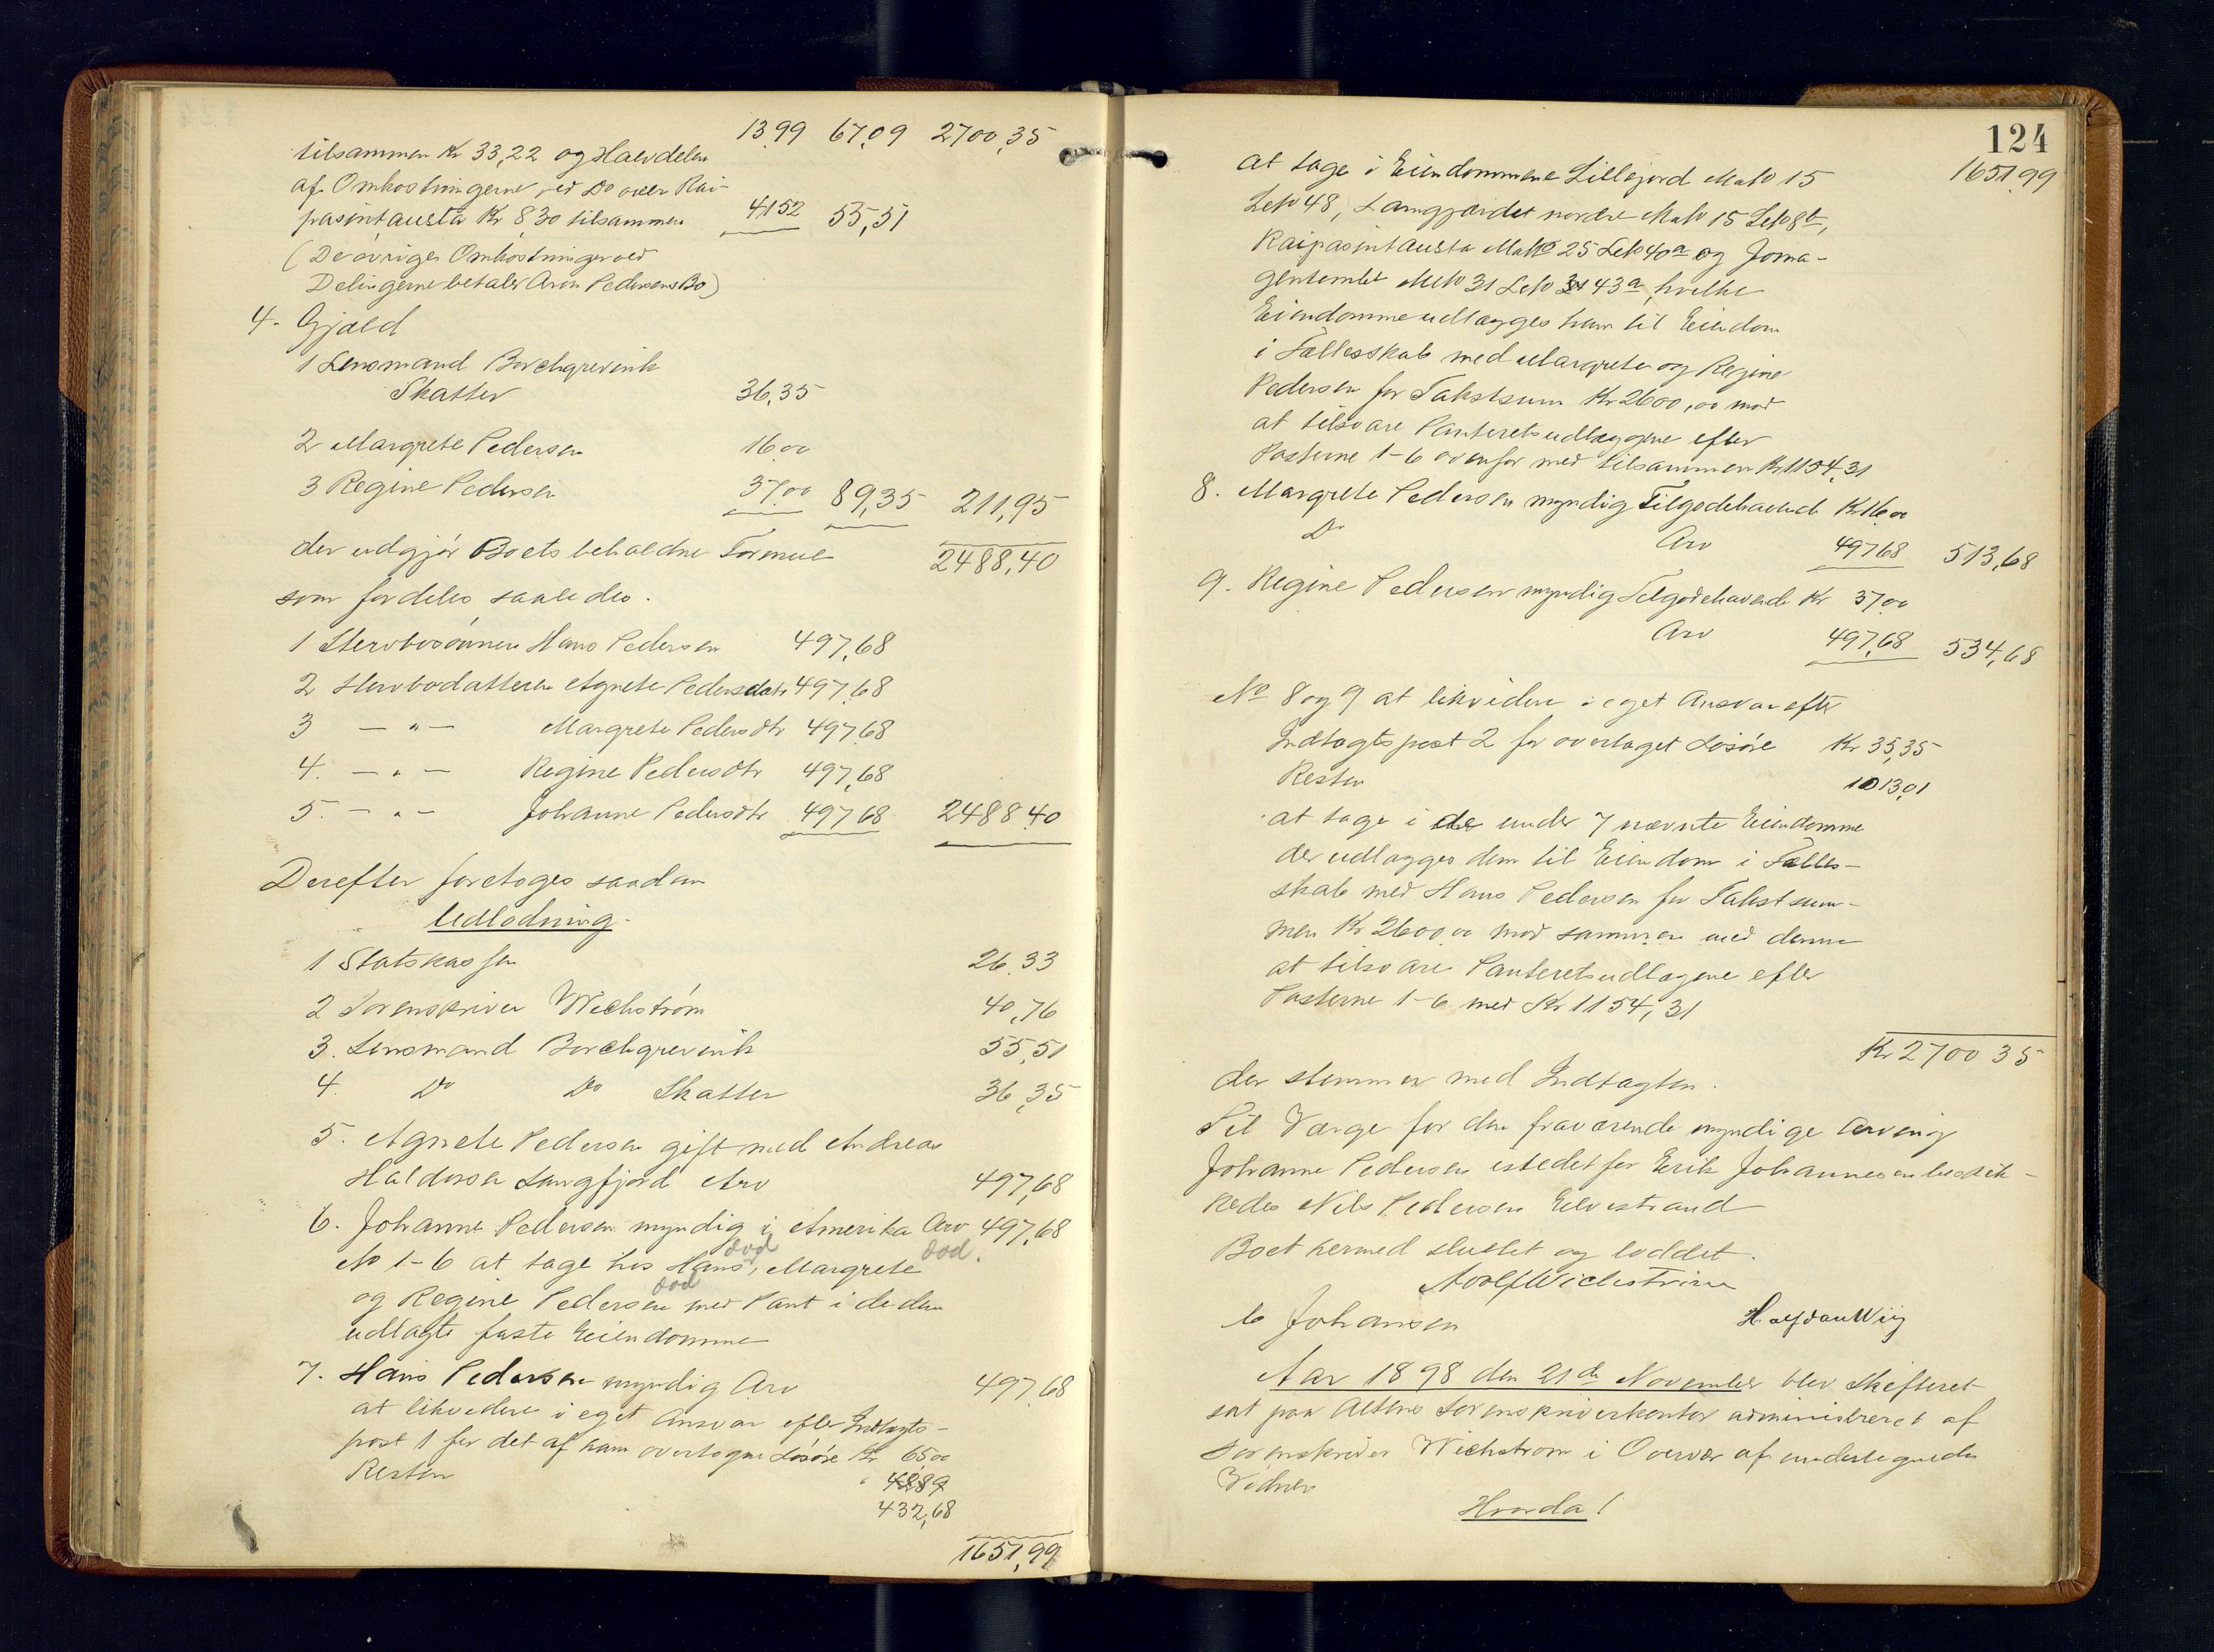 13,99 67,09 2700,35
tilsammen Kr 33,22 og Halvdelen
af Omkostningerne ved Do over Rai-
pasintausta Kr 8,30 tilsammen 41,52 55,51
(De øvrige Omkostninger ved
Delingerne betaler Aron Pedersens Bo)
4. Gjæld
1 Lensmand Borchgrevink
Skatter 36,35
2 Margrete Pedersen 16,00
3 Regine Pedersen 37,00 89,35 211,95
der udgjør Boets beholdne Formue 2488,40
som fordeles saaledes.
1 Stervbosønnen Hans Pedersen 497,68
2 Stervbodatteren Agnete Pedersdatr 497,68
3 — " — Margrete Pedersdtr 497,68
4. — " — Regine Pedersdtr 497,68
5. — " — Johanne Pedersdtr 497,68 2488,40
Derefter foretoges saadan
Udlodning.
1 Statskassen 26,33
2 Sorenskriver Wichstrøm 40,76
3. Lensmand Borchgrevink 55,51
4. Do Do Skatter 36,35
5. Agnete Pedersen gift med Andreas
Haldorsen Langfjord Arv 497,68
6. Johanne Pedersen myndig i Amerika Arv 497,68
død død.
No 1-6 at tage hos Hans, Margrete
død
og Regine Pedersen med Pant i de dem
udlagte faste Eiendomme
7. Hans Pedersen myndig Arv 497,68
at likvidere i eget Ansvar efter Indtægts-
post 1 for det af ham overtagne Løsøre Kr 65,00
Resten " 4889
432,68
1651,99
124
1651,99
at tage i Eiendommene Lillejord MaNo 15
LeNo 48, Langjordet nordre MaNo 15 LeNo 8b,
Raipasintausta MaNo 25 LeNo 40a og Joma-
gentemlet MaNo 31 LeNo 43a, hvilke
Eiendomme udlægges ham til Eiendom
i Fællesskab med Margrete og Regine
Pedersen for Takstsum Kr 2600,00 mod
at tilsvare Panteretsudlæggene efter
Posterne 1-6 ovenfor med tilsammen Kr 1154,31
8. Margrete Pedersen myndig Tilgodehavende Kr 16,00
Do Arv 497,68 513,68
9. Regine Pedersen myndig Tilgodehavende Kr 37,00
Arv 497,68 534,68
No 8 og 9 at likvidere i eget Ansvar efter
Indtægtspost 2 for overtaget Løsøre Kr 35,35
Resten 1013,01
at tage i de under 7 nævnte Eiendomme
der udlægges dem til Eiendom i Fælles-
skab med Hans Pedersen for Takstsum-
men Kr 2600,00 mod sammen med denne
at tilsvare Panteretsudlægene efter
Posterne 1-6 med Kr 1154,31
Kr 2700 35
der stemmer med Indtægten.
Til Værge for den fraværende myndige Arving
Johanne Pedersen istedetfor Erik Johannesen beskik-
kedes Nils Pedersen Elvestrand
Boet hermed sluttet og loddet.
Adolf Wichstrøm
C Johansen Halfdan Wiig
Aar 1898 den 21de November blev Skifteret
sat paa Altens Sorenskriverkontor administreret af
Sorenskriver Wichstrøm i Overvær af undertegnede
Vidner
Hvorda!